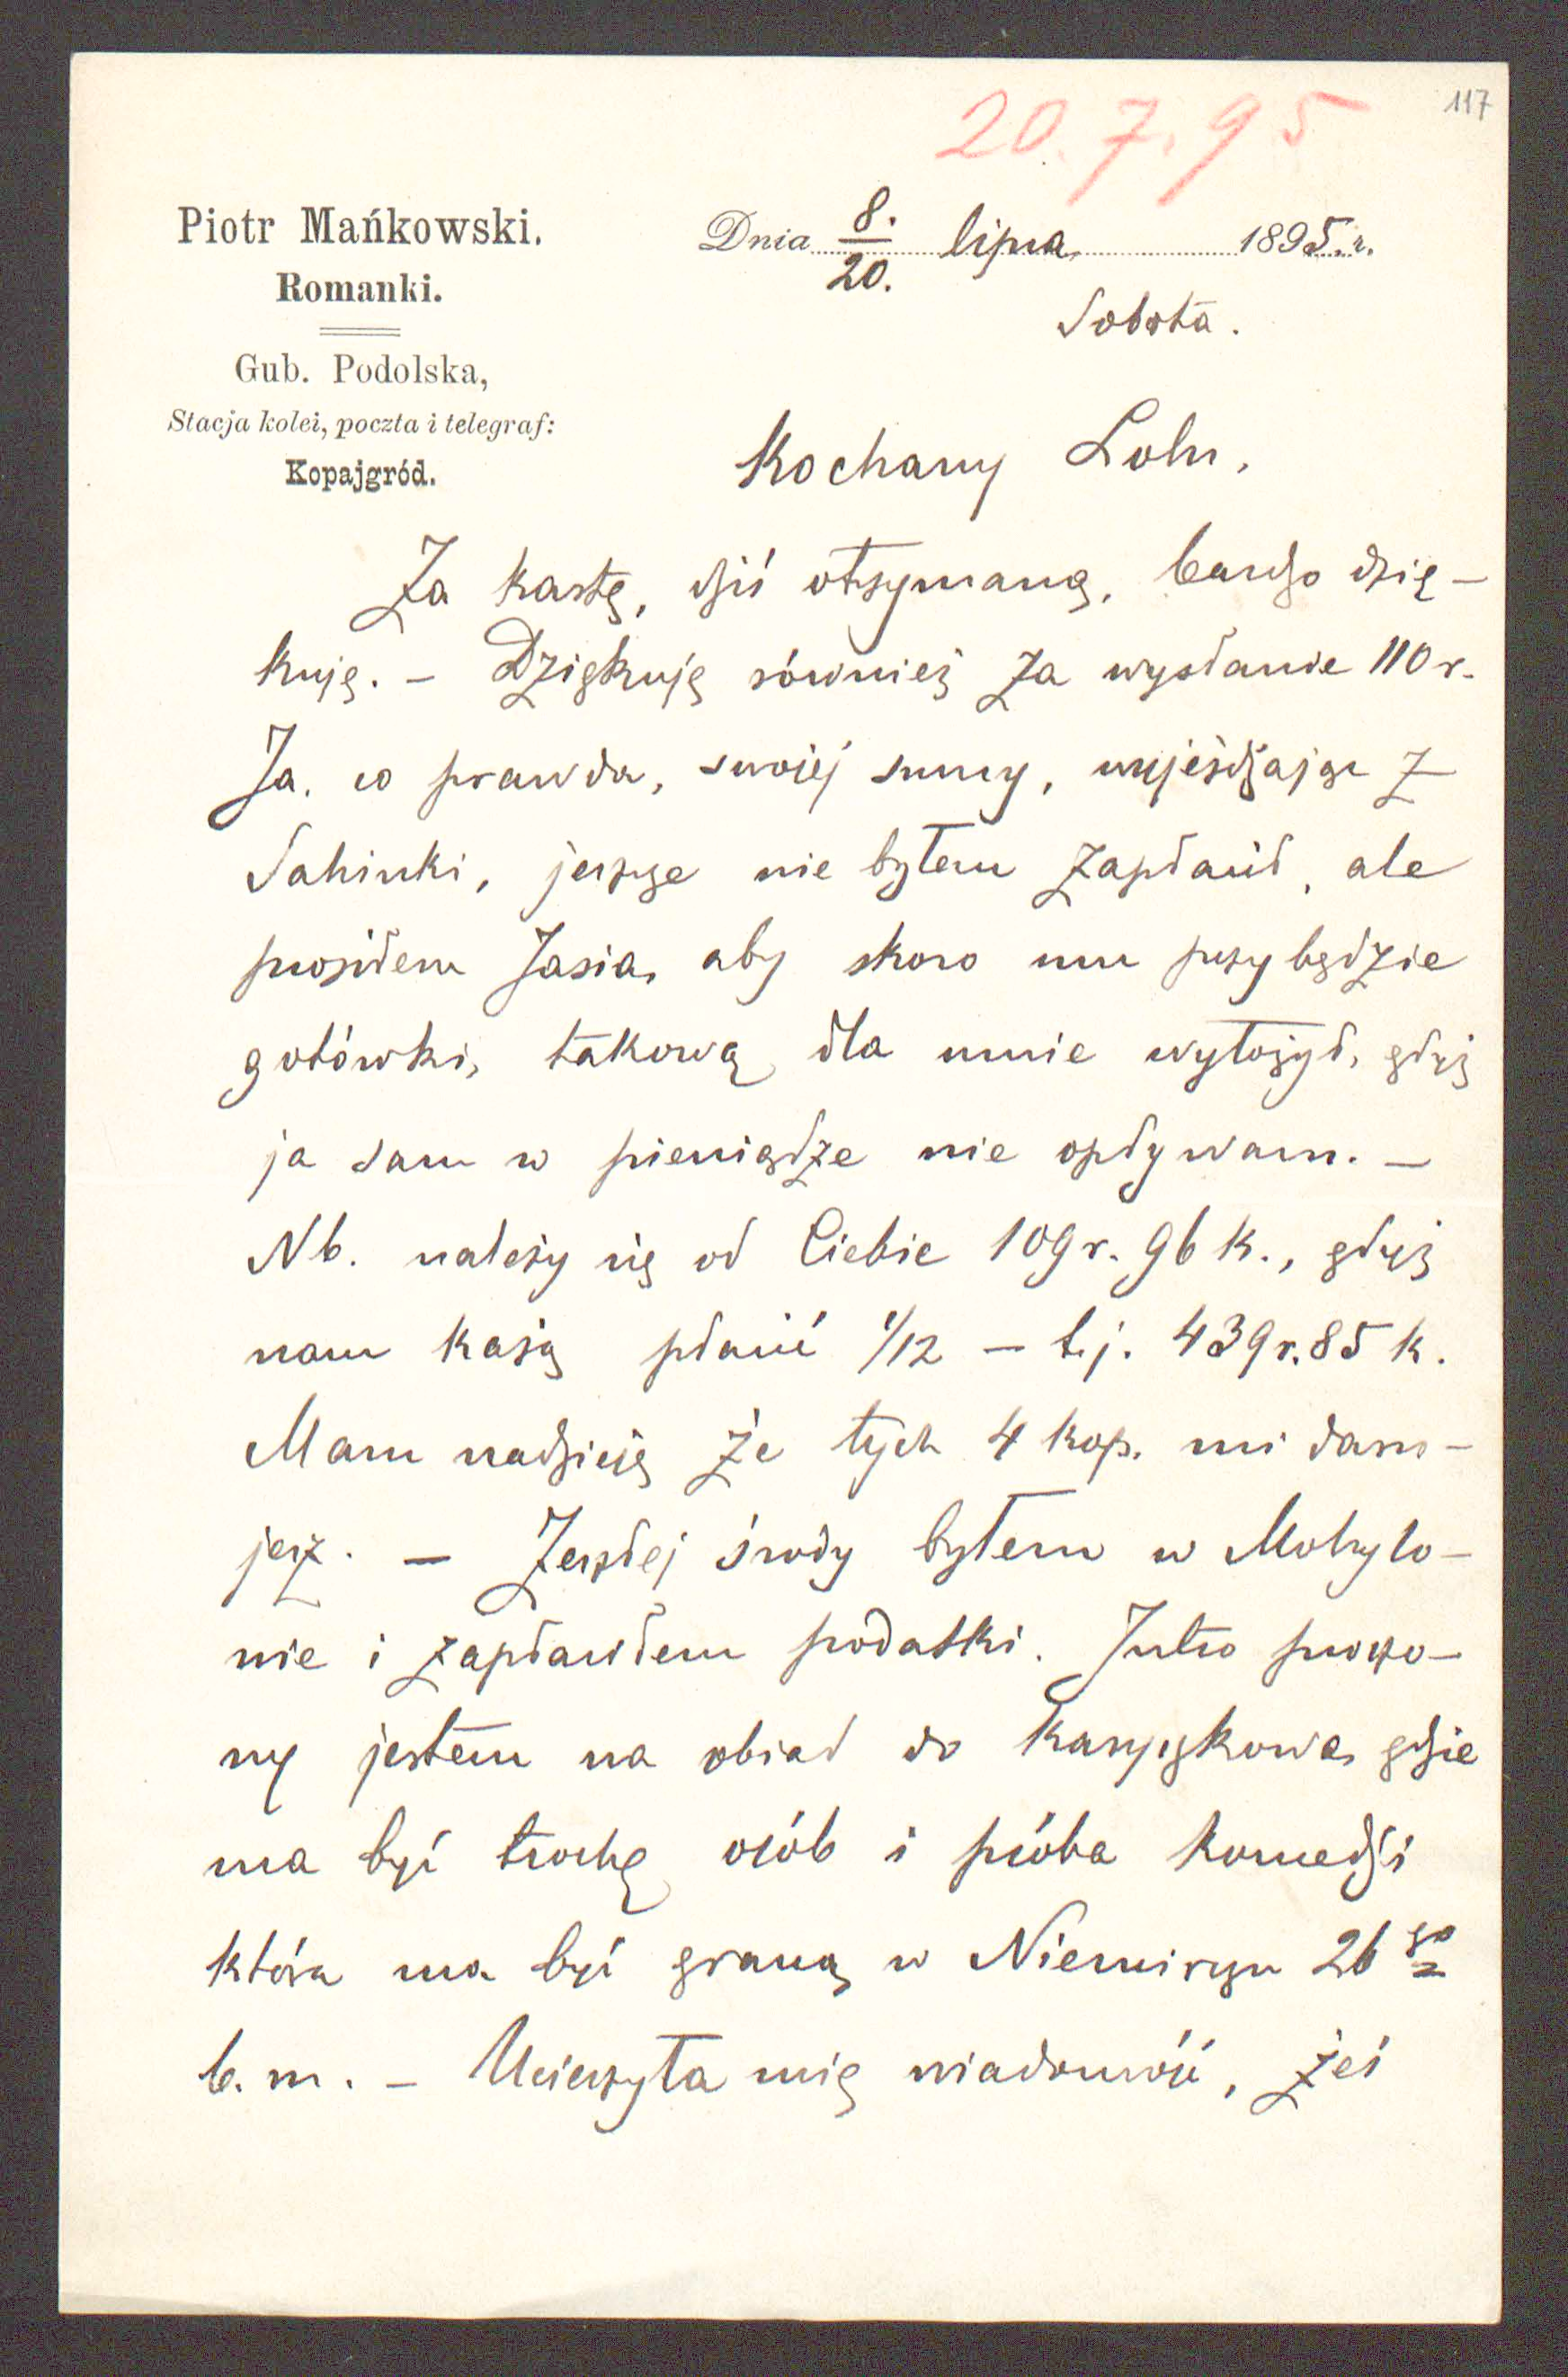 117
20.7.95
Piotr Mańkowski.
Romanki.
Gub. Podolska,
Stacja kolei, poczta i telegraf:
Kopajgród.
Dnia 8./20. lipca 1895.r.
Sobota.
Kochany Lolu,
Za kartę, dziś otrzymaną, bardzo dzię-
kuję. – Dziękuję również za wysłanie 110 r.
Ja, co prawda, swojej sumy, wyjeżdżając z
Sahinki, jeszcze nie byłem zapłacił, ale
prosiłem Jasia, aby skoro mu przybędzie
gotówki, takową dla mnie wyłożył, gdyż
ja sam w pieniądze nie opływam. –
Nb. należy się od Ciebie 109 r. 96 k., gdyż
nam każą płacić 1/12 – t.j. 439 r. 85 k.
Mam nadzieję że tych 4 kop. mi daru-
jesz. – Zeszłej środy byłem w Mohylo-
wie i zapłaciłem podatki. Jutro proszo-
ny jestem na obiad do gdzie
ma być trochę osób i próba komedji
która ma być graną w Niemirycu 26 go
b. m. – Ucieszyła mię wiadomość, żeś